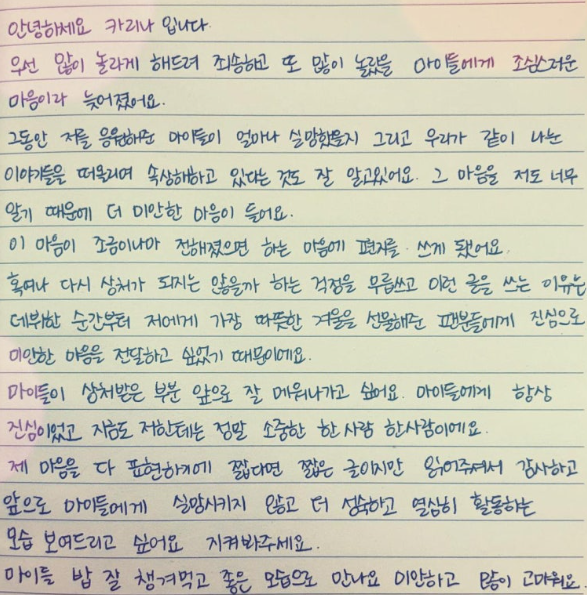 안녕하세요 카리나 입니다
우선 많이 놀라게 해드려 죄송하고 또 많이 놀랐을 마이들에게 조심스러운
마음이라 늦어졌어요.
그동안 저를 응원해준 마이들이 얼마나 실망했을지 그리고 우리가 같이 나눈
이야기들을 떠올리며 속상해하고 있다는 것도 잘 알고있어요. 그 마음을 저도 너무
알기 때문에 더 미안한 마음이 들어요.
이 마음이 조금이나마 전해졌으면 하는 마음에 편지를 쓰게 됐어요.
혹여나 다시 상처가 되지는 않을까 하는 걱정을 무릅쓰고 이런 글을 쓰는 이유는
데뷔한 순간부터 저에게 가장 따뜻한 겨울을 선물해준 팬분들에게 진심으로
미안한 마음을 전달하고 싶었기 때문이에요.
마이들이 상처받은 부분 앞으로 잘 메워나가고 싶어요. 마이들에게 항상
진심이었고 지금도 저한테는 정말 소중한 한 사람 한사람이에요.
제 마음을 다 표현하기에 짧다면 짧은 글이지만 읽어주셔서 감사하고
앞으로 마이들에게 실망시키지 않고 더 성숙하고 열심히 활동하는
모습 보여드리고 싶어요 지켜봐주세요.
마이들 밥 잘 챙겨먹고 좋은 모습으로 만나요 미안하고 많이 고마워요.